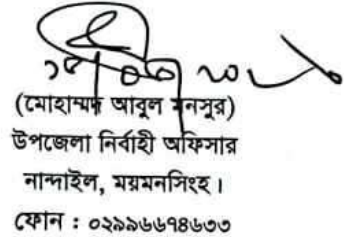 (মোহাম্মদ আবুল মনসুর)
উপজেলা নির্বাহী অফিসার
নান্দাইল, ময়মনসিংহ।
ফোন : ০২৯৯৬৬৭৪৬৩৩